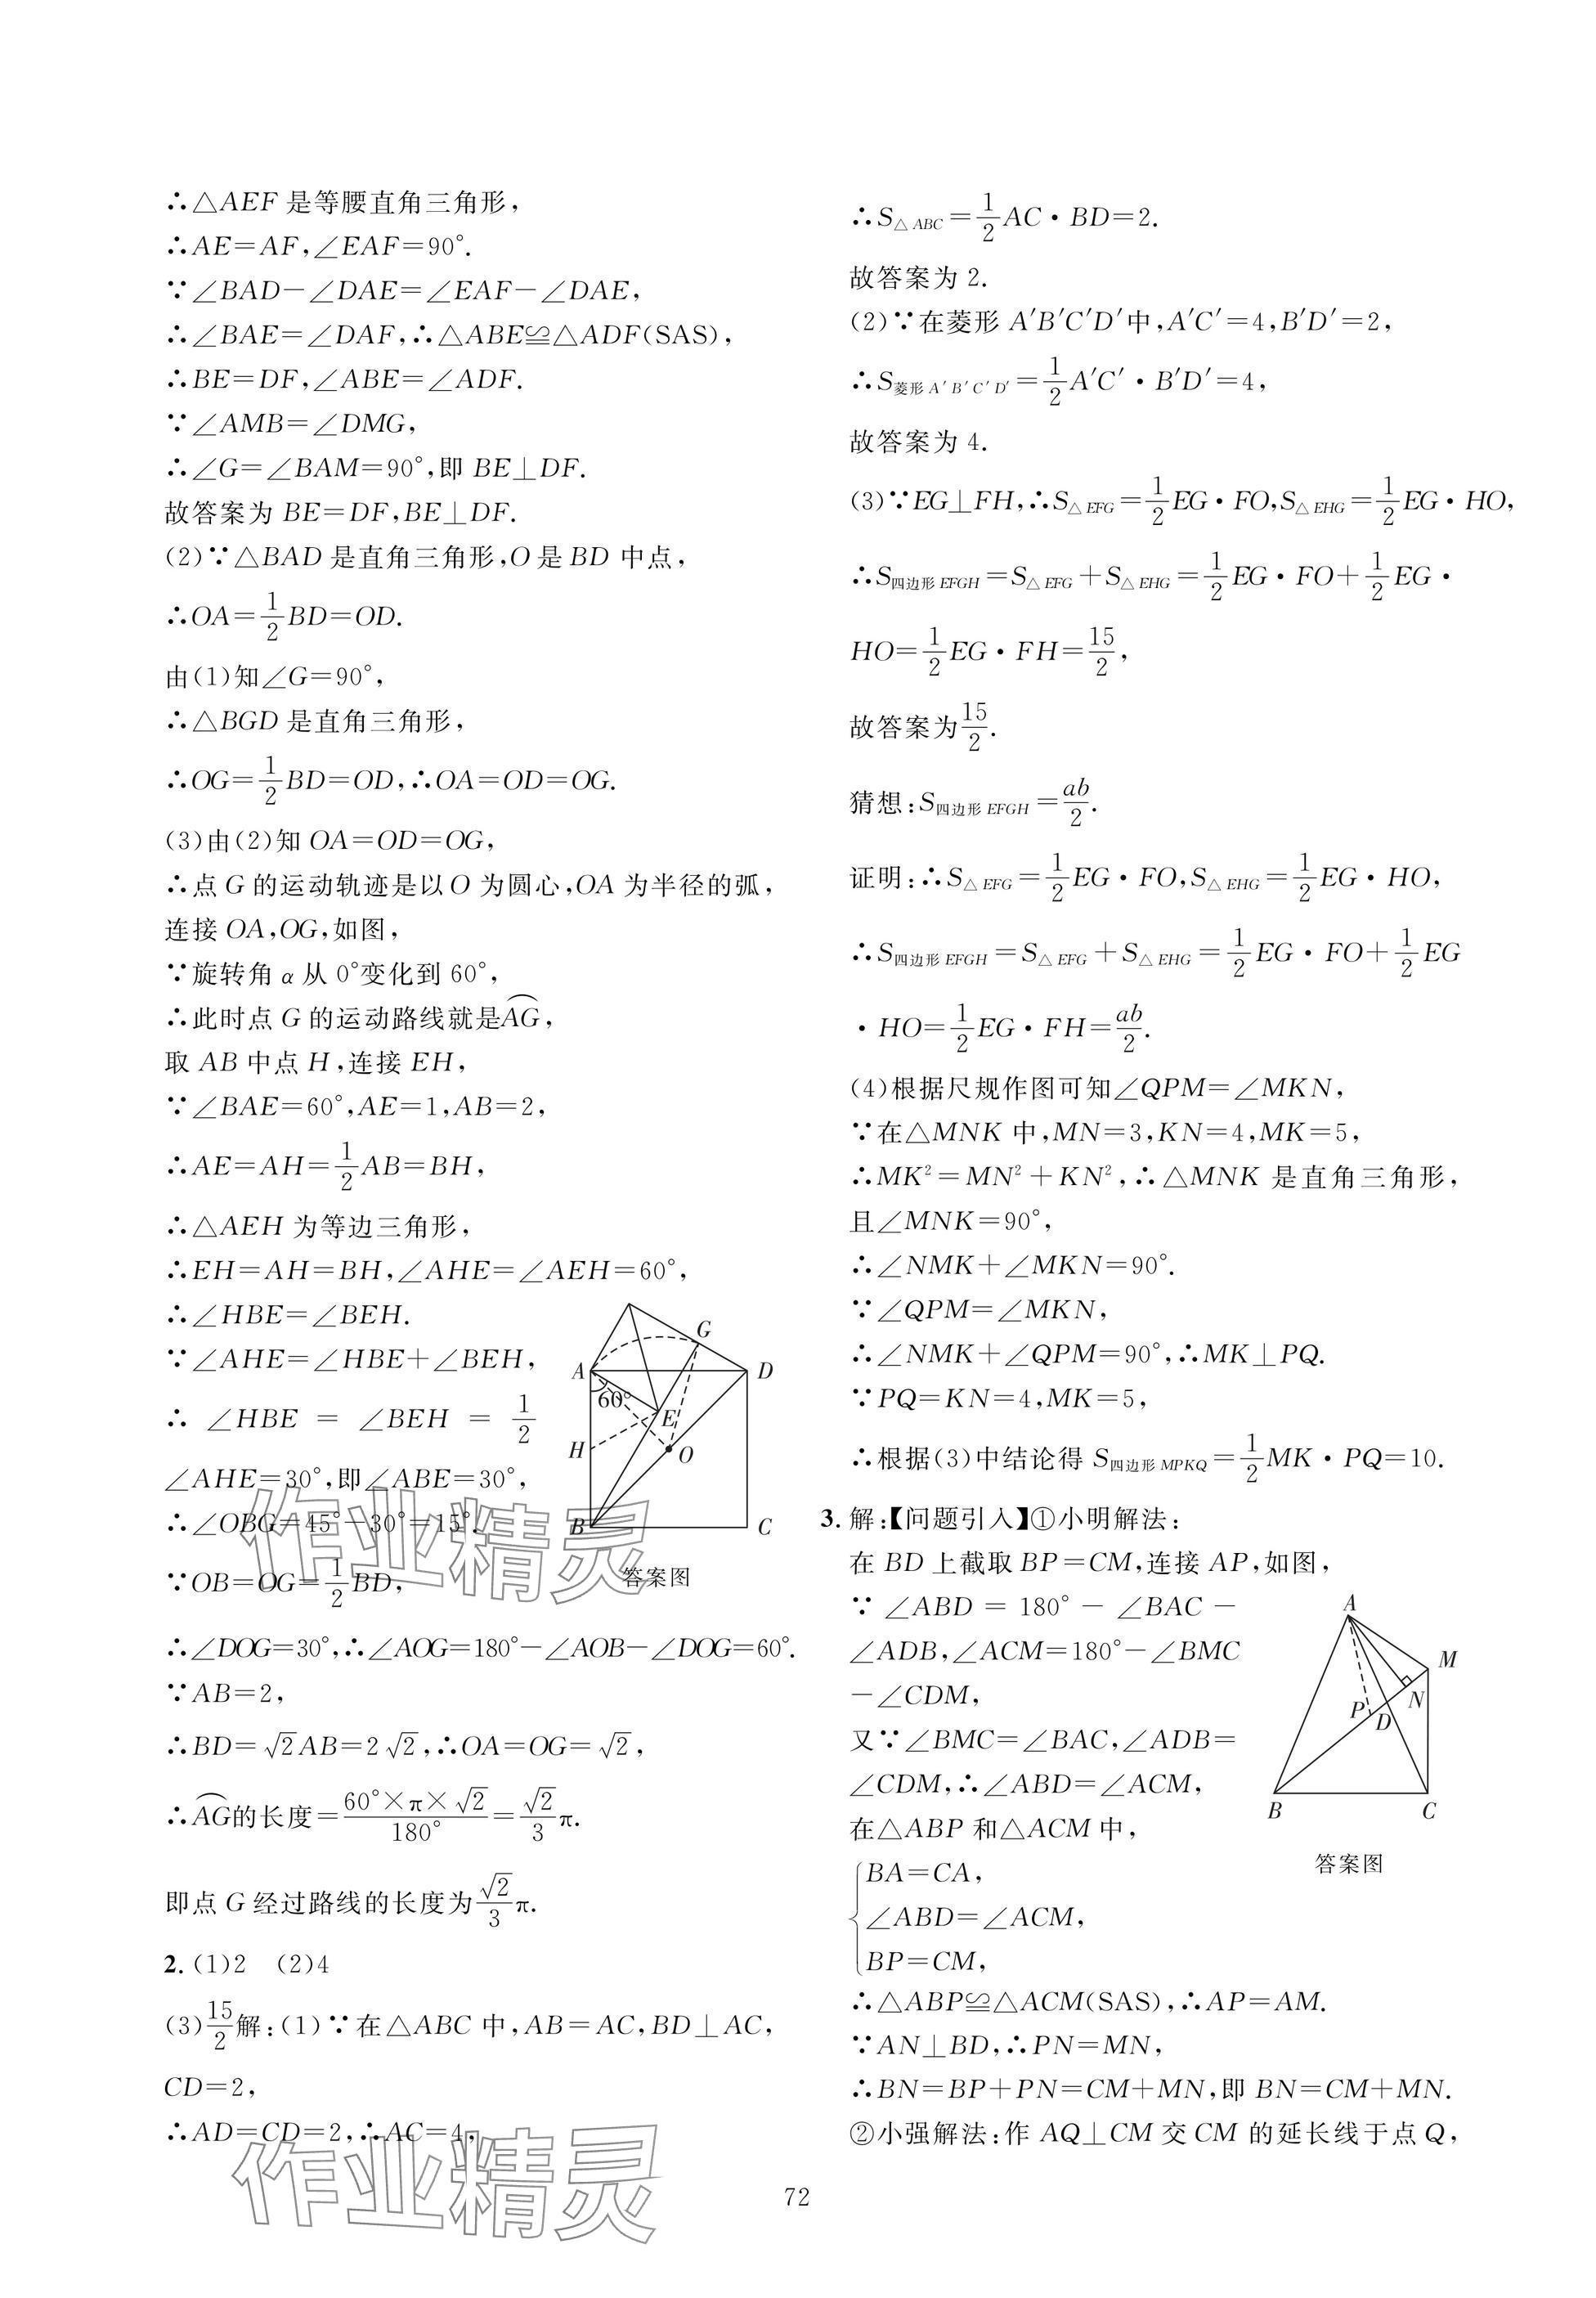 ∴△AEF 是等腰直角三角形，
∴AE=AF,∠EAF=90°.
∵∠BAD-∠DAE=∠EAF-∠DAE,
∴∠BAE=∠DAF,∴△ABE≌△ADF(SAS),
∴BE=DF,∠ABE=∠ADF.
∵∠AMB=∠DMG,
∴∠G=∠BAM=90°,即 BE⊥DF.
故答案为 BE=DF,BE⊥DF.
(2)∵△BAD 是直角三角形,O 是 BD 中点,
∴OA=1/2BD=OD.
由(1)知∠G=90°,
∴△BGD 是直角三角形,
∴OG=1/2BD=OD,∴OA=OD=OG.
(3)由(2)知 OA=OD=OG,
∴点 G 的运动轨迹是以 O 为圆心,OA 为半径的弧,
连接 OA,OG,如图,
∵旋转角 α 从 0°变化到 60°,
∴此时点 G 的运动路线就是⌒AG,
取 AB 中点 H,连接 EH,
∵∠BAE=60°,AE=1,AB=2,
∴AE=AH=1/2AB=BH,
∴△AEH 为等边三角形,
∴EH=AH=BH,∠AHE=∠AEH=60°,
∴∠HBE=∠BEH.
∵∠AHE=∠HBE+∠BEH,
∴ ∠HBE = ∠BEH = 1/2
∠AHE=30°,即∠ABE=30°,
∴∠OBG=45°-30°=15°.
∵OB=OG=1/2BD,
G
A
D
60°
E
H
O
B
C
答案图
∴∠DOG=30°,∴∠AOG=180°-∠AOB-∠DOG=60°.
∵AB=2,
∴BD=√2AB=2√2,∴OA=OG=√2,
∴⌒AG的长度=60°×π×√2/180°=√2/3π.
即点 G 经过路线的长度为√2/3π.
2.(1)2 (2)4
(3)15/2解:(1)∵在△ABC 中,AB=AC,BD⊥AC,
CD=2,
∴AD=CD=2,∴AC=4,
∴S△ABC=1/2AC·BD=2.
故答案为 2.
(2)∵在菱形 A′B′C′D′中,A′C′=4,B′D′=2,
∴S菱形A′B′C′D′=1/2A′C′·B′D′=4,
故答案为 4.
(3)∵EG⊥FH,∴S△EFG=1/2EG·FO,S△EHG=1/2EG·HO,
∴S四边形EFGH=S△EFG+S△EHG=1/2EG·FO+1/2EG·
HO=1/2EG·FH=15/2,
故答案为15/2.
猜想:S四边形EFGH=ab/2.
证明:∴S△EFG=1/2EG·FO,S△EHG=1/2EG·HO,
∴S四边形EFGH=S△EFG+S△EHG=1/2EG·FO+1/2EG
·HO=1/2EG·FH=ab/2.
(4)根据尺规作图可知∠QPM=∠MKN,
∵在△MNK 中,MN=3,KN=4,MK=5,
∴MK²=MN²+KN²,∴△MNK 是直角三角形,
且∠MNK=90°,
∴∠NMK+∠MKN=90°.
∵∠QPM=∠MKN,
∴∠NMK+∠QPM=90°,∴MK⊥PQ.
∵PQ=KN=4,MK=5,
∴根据(3)中结论得 S四边形MPKQ=1/2MK·PQ=10.
3.解:【问题引入】①小明解法:
在 BD 上截取 BP=CM,连接 AP,如图,
∵ ∠ABD = 180° - ∠BAC -
∠ADB,∠ACM=180°-∠BMC
-∠CDM,
又∵∠BMC=∠BAC,∠ADB=
∠CDM,∴∠ABD=∠ACM,
在△ABP 和△ACM 中,
A
M
N
P
D
B
C
答案图
BA=CA,
∠ABD=∠ACM,
BP=CM,
∴△ABP≌△ACM(SAS),∴AP=AM.
∵AN⊥BD,∴PN=MN,
∴BN=BP+PN=CM+MN,即 BN=CM+MN.
②小强解法:作 AQ⊥CM 交 CM 的延长线于点 Q,
72
作业精灵
作业精灵